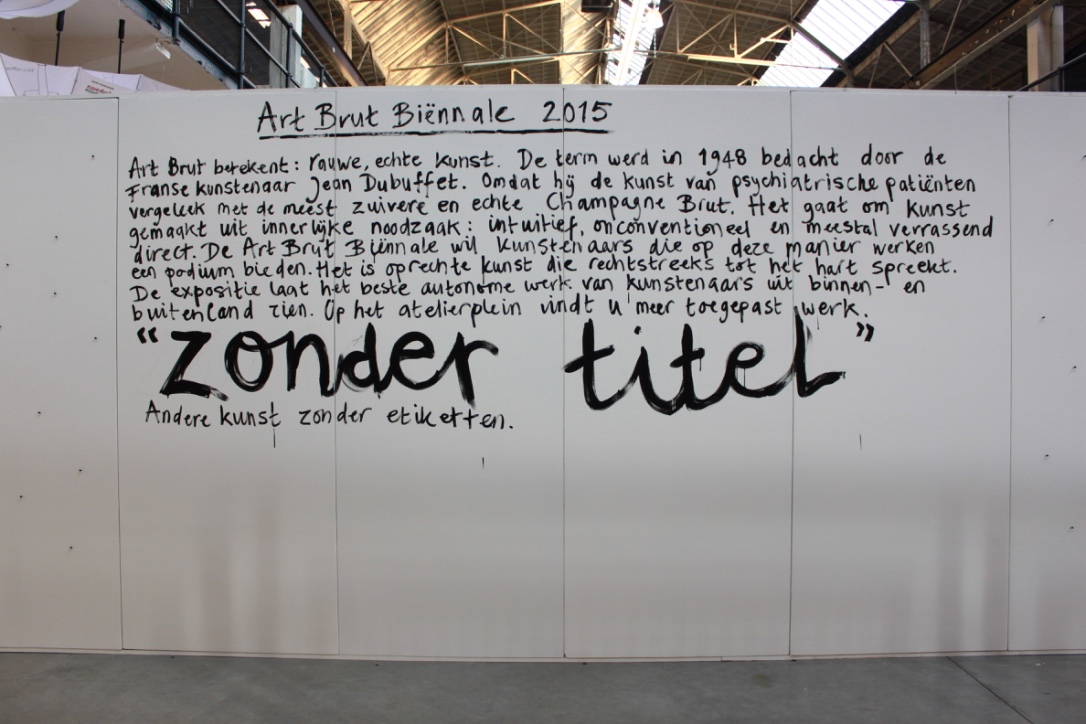 Art Brut Biënnale 2015
Art Brut betekent: rauwe, echte kunst. De term werd in 1948 bedacht door de
Franse kunstenaar Jean Dubuffet. Omdat hij de kunst van psychiatrische patiënten
vergeleek met de meest zuivere en echte Champagne Brut. Het gaat om kunst
gemaakt uit innerlijke noodzaak: intuïtief, onconventioneel en meestal verrassend
direct. De Art Brut Biënnale wil kunstenaars die op deze manier werken
een podium bieden. Het is oprechte kunst die rechtstreeks tot het hart spreekt.
De expositie laat het beste autonome werk van kunstenaars uit binnen- en
buitenland zien. Op het atelierplein vindt u meer toegepast werk.
"zonder titel"
Andere kunst zonder etiketten.